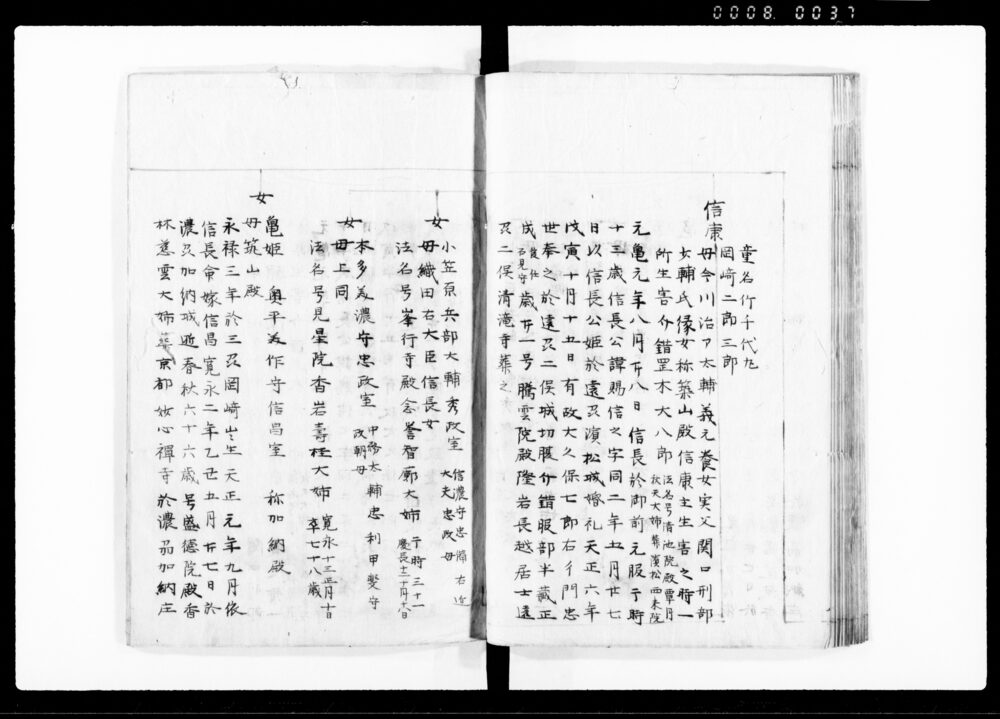 0008 0037
信康
童名竹千代丸
岡崎二郎三郎
母今川治部太輔義元養女実父関口刑部
女輔氏縁女称築山殿信康主生害之時一
所生害介錯罡木大八郎 法名号清池院殿覃月
秋天大姉葬濱松西来院
元亀元年八月廿八日信長於御前元服于時
十三歳信長公諱賜信之字同二年五月廿七
日以信長公姫於遠刕濱松城婚礼天正六年
戊寅十月十五日有故大久保七郎右衛門忠
世奉之於遠刕二俣城切腹介錯服部半蔵正
成 後任
石見守 歳廿一号騰雲院殿隆岩長越居士遠
刕二俣清滝寺葬之
女
小笠原兵部大輔秀政室 信濃守忠脩右近
大夫忠政母
母織田右大臣信長女
法名号峯行寺殿念誉智廓大姉 于時三十一
慶長十二十月十八日
女
本多美濃守忠政室 中務太輔忠刻甲斐守
政朝母
母上同
法名号見星院香岩壽桂大姉 寛永十三正月十日
卒七十八歳
女
亀姫 奥平美作守信昌室 称加納殿
母築山殿
永禄三年於三刕岡崎出生天正元年九月依
信長命嫁信昌寛永二年乙丑五月廿七日於
濃刕加納城逝春秋六十六歳号盛徳院殿香
林慈雲大姉葬京都妙心禅寺於濃刕加納庄